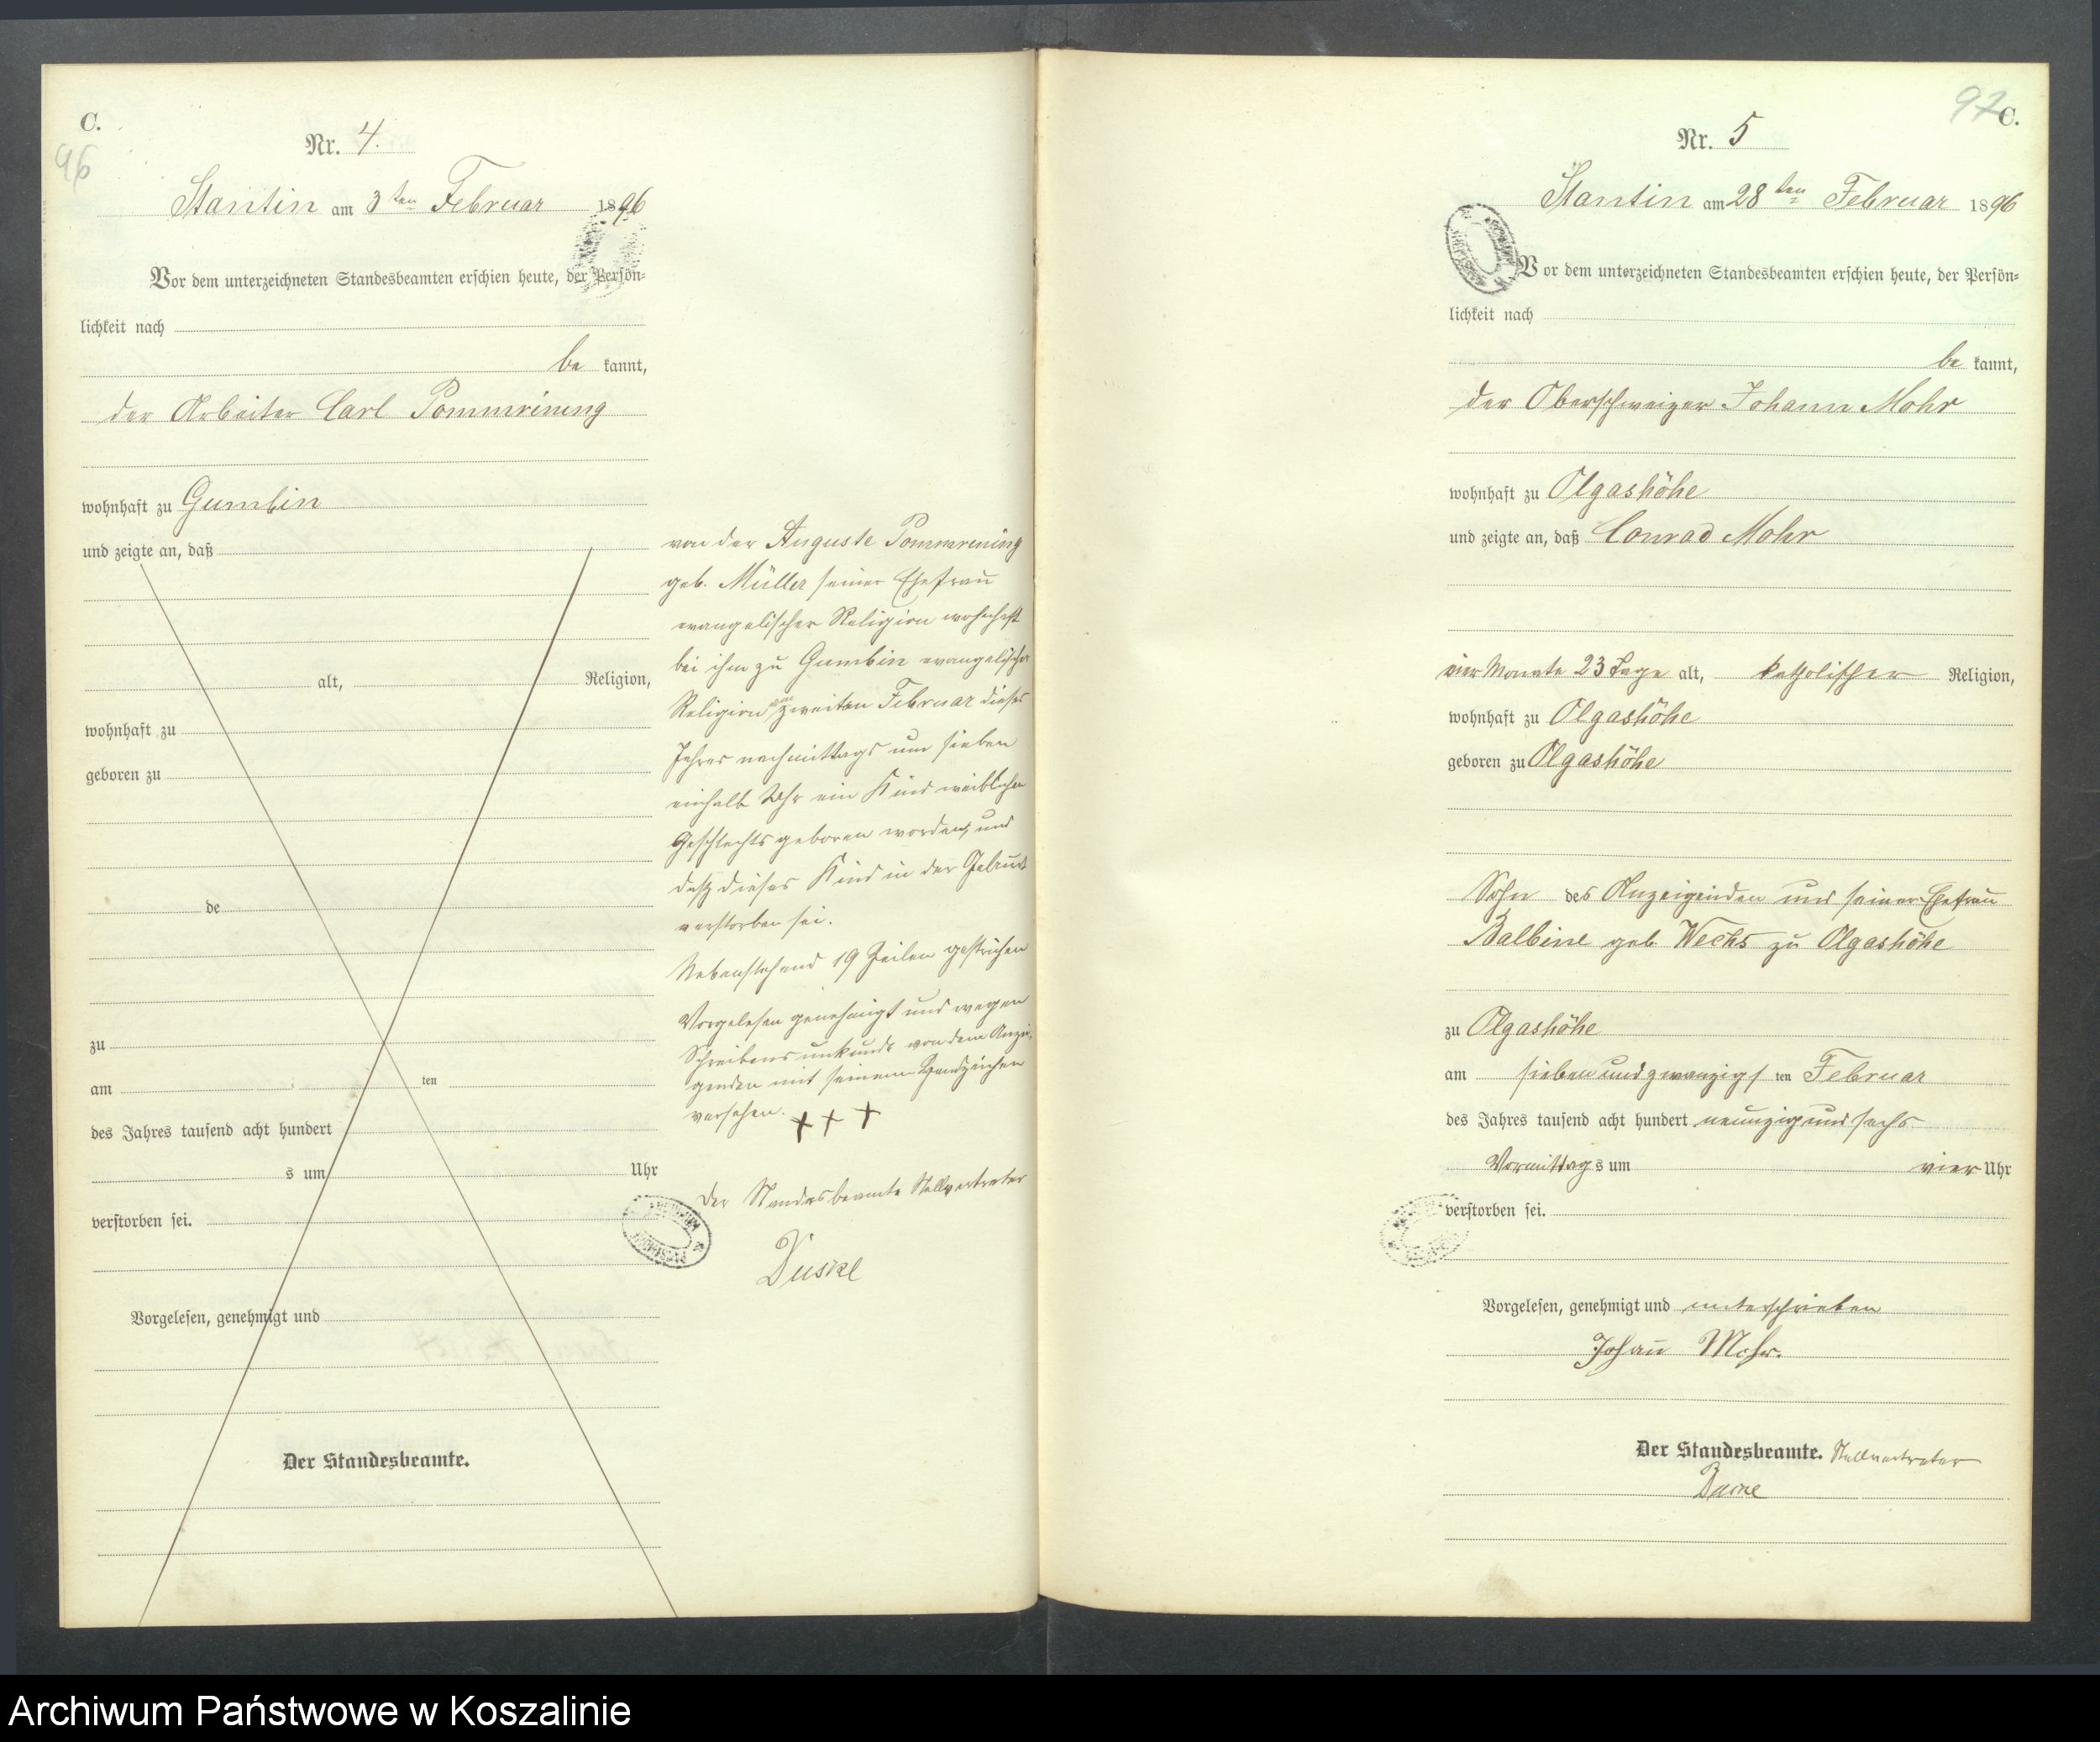 C.
96
Nr. 4.
Stantin am 3ten Februar 1896
Vor dem unterzeichneten Standesbeamten erschien heute, der Persön-
lichkeit nach
be kannt,
der Arbeiter Carl Pommrening
wohnhaft zu Gumbin
und zeigte an, daß
alt, Religion,
wohnhaft zu
geboren zu
de
zu
am ten
des Jahres tausend acht hundert
s um Uhr
verstorben sei.
Vorgelesen, genehmigt und
Der Standesbeamte.
von der Auguste Pommrening
geb. Müller seiner Ehefrau
evangelischer Religion wohnhaft
bei ihm zu Gumbin evangelischer
Religion am zweiten Februar dieses
Jahres nachmittags um sieben
einhalb Uhr ein Kind weiblichen
Geschlechts geboren worden, und
daß dieses Kind in der Geburt
verstorben sei.
Nebenstehend 19 Zeilen gestrichen
Vorgelesen genehmigt und wegen
Schreibensunkunde von dem Anzei-
genden mit seinem Handzeichen
versehen. + + +
Der Standesbeamte Stellvertreter
97
C.
Nr. 5
Stantin am 28ten Februar 1896
Vor dem unterzeichneten Standesbeamten erschien heute, der Persön-
lichkeit nach
be kannt,
der Oberschweizer Johann Mohr
wohnhaft zu Olgashöhe
und zeigte an, daß Conrad Mohr
vier Monate 23 Tage alt, katholischer Religion,
wohnhaft zu Olgashöhe
geboren zu Olgashöhe
Sohn des Anzeigenden und seiner Ehefrau
Balbine geb. Wechs zu Olgashöhe
zu Olgashöhe
am siebenundzwanzigsten Februar
des Jahres tausend acht hundert neunzig und sechs
Vormittags um vier Uhr
verstorben sei.
Vorgelesen, genehmigt und unterschrieben
Johann Mohr.
Der Standesbeamte. Stellvertreter
Archiwum Państwowe w Koszalinie